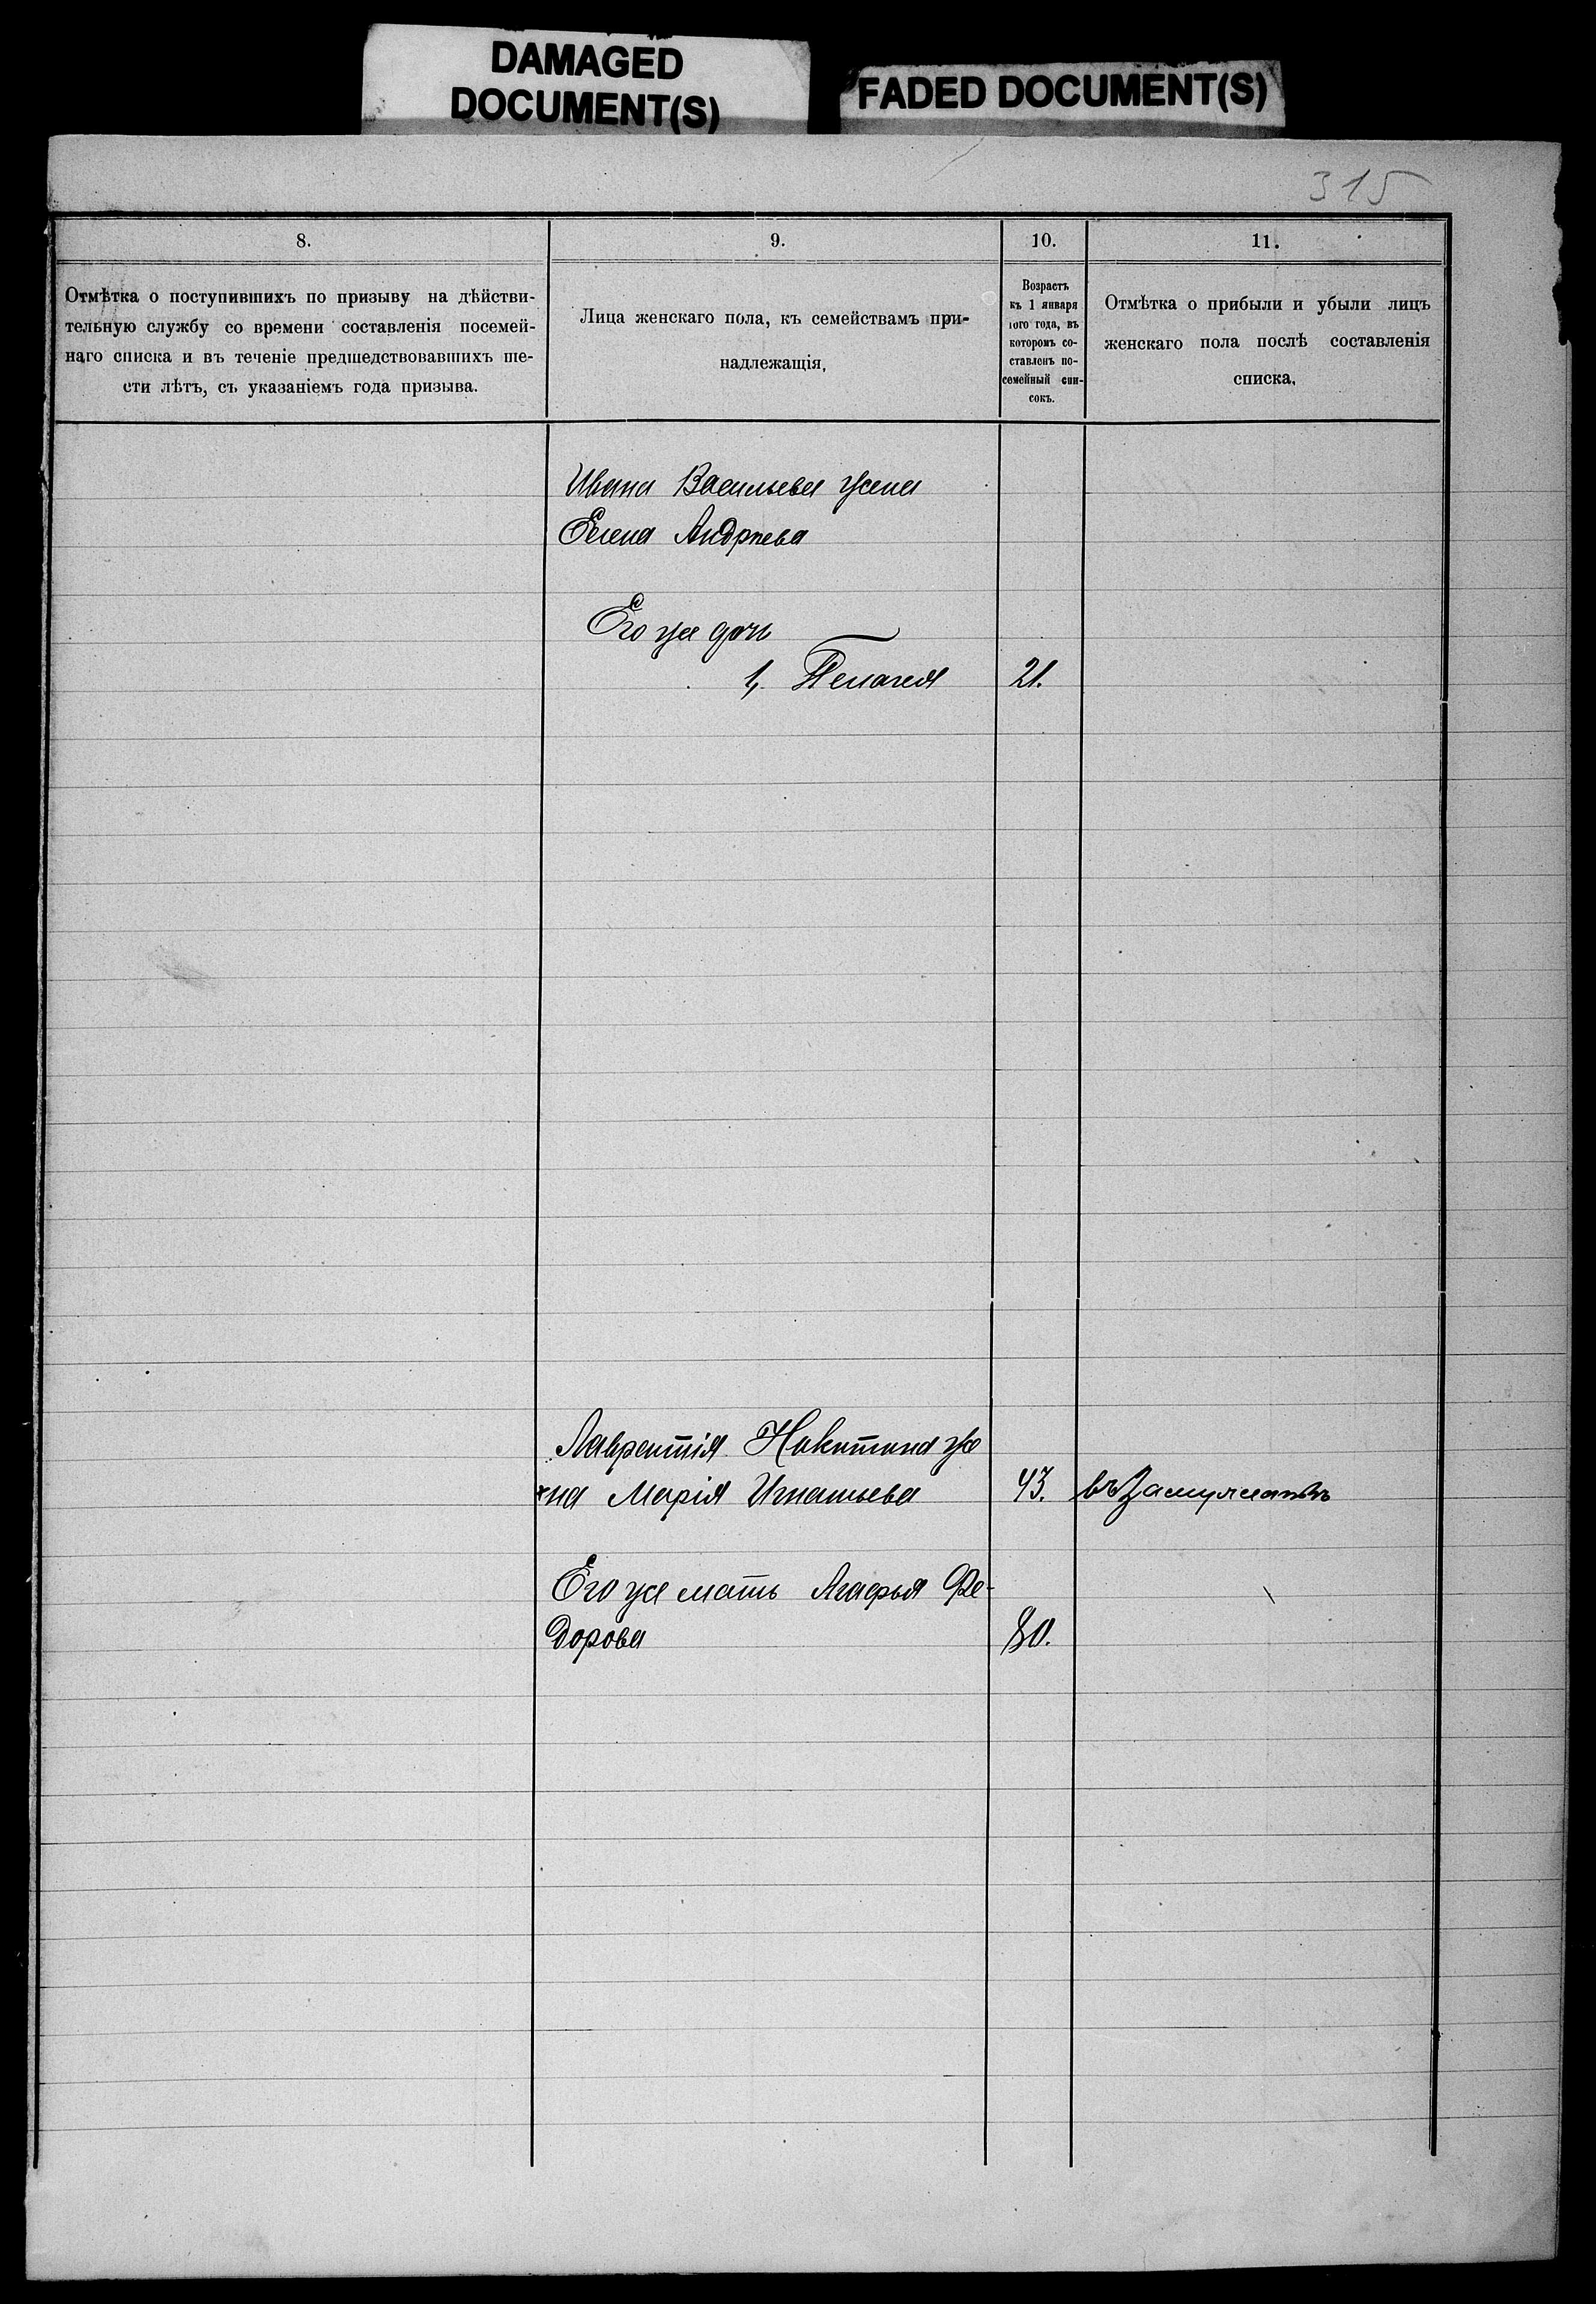 DAMAGED
DOCUMENT(S)
FADED DOCUMENT(S)
315
8.
9.
10.
11.
Отмѣтка о поступившихъ по призыву на дѣйстви-
тельную службу со времени составленія посемей-
наго списка и въ теченіе предшедствовавшихъ ше-
сти лѣтъ, съ указаніемъ года призыва.
Лица женскаго пола, къ семействамъ при-
надлежащія,
Возрастъ
къ 1 января
того года, въ
которомъ со-
ставленъ по-
семейный спи-
сокъ.
Отмѣтка о прибыли и убыли лицъ
женскаго пола послѣ составленія
списка,
Ивана Васильева жена
Елена Андреева
Его же дочь
1, Пелагея 21.
Лаврентія Никитина же
на Марія Игнатьева 43. въ замужествѣ
Его же мать Агафья Фе-
дорова 80.